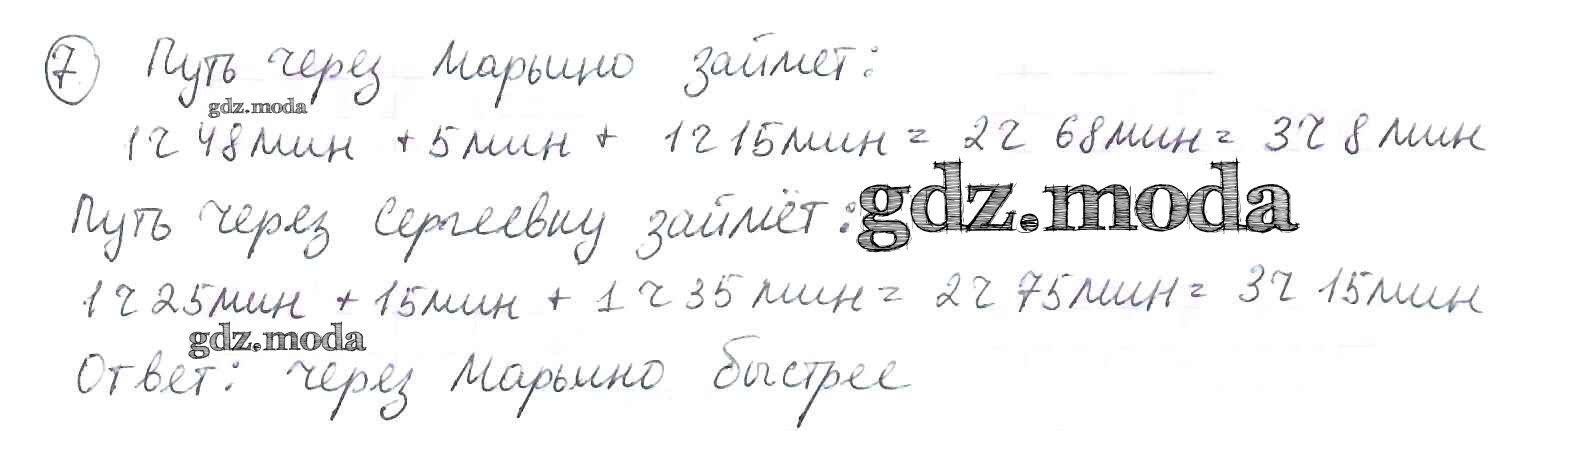 7 Путь через Марьино займет:
gdz.moda
1ч 48мин + 5мин + 1ч 15мин = 2ч 68мин = 3ч 8мин
Путь через Сергеевку займёт:
gdz.moda
1ч 25мин + 15мин + 1ч 35мин = 2ч 75мин = 3ч 15мин
gdz.moda
Ответ: через Марьино быстрее